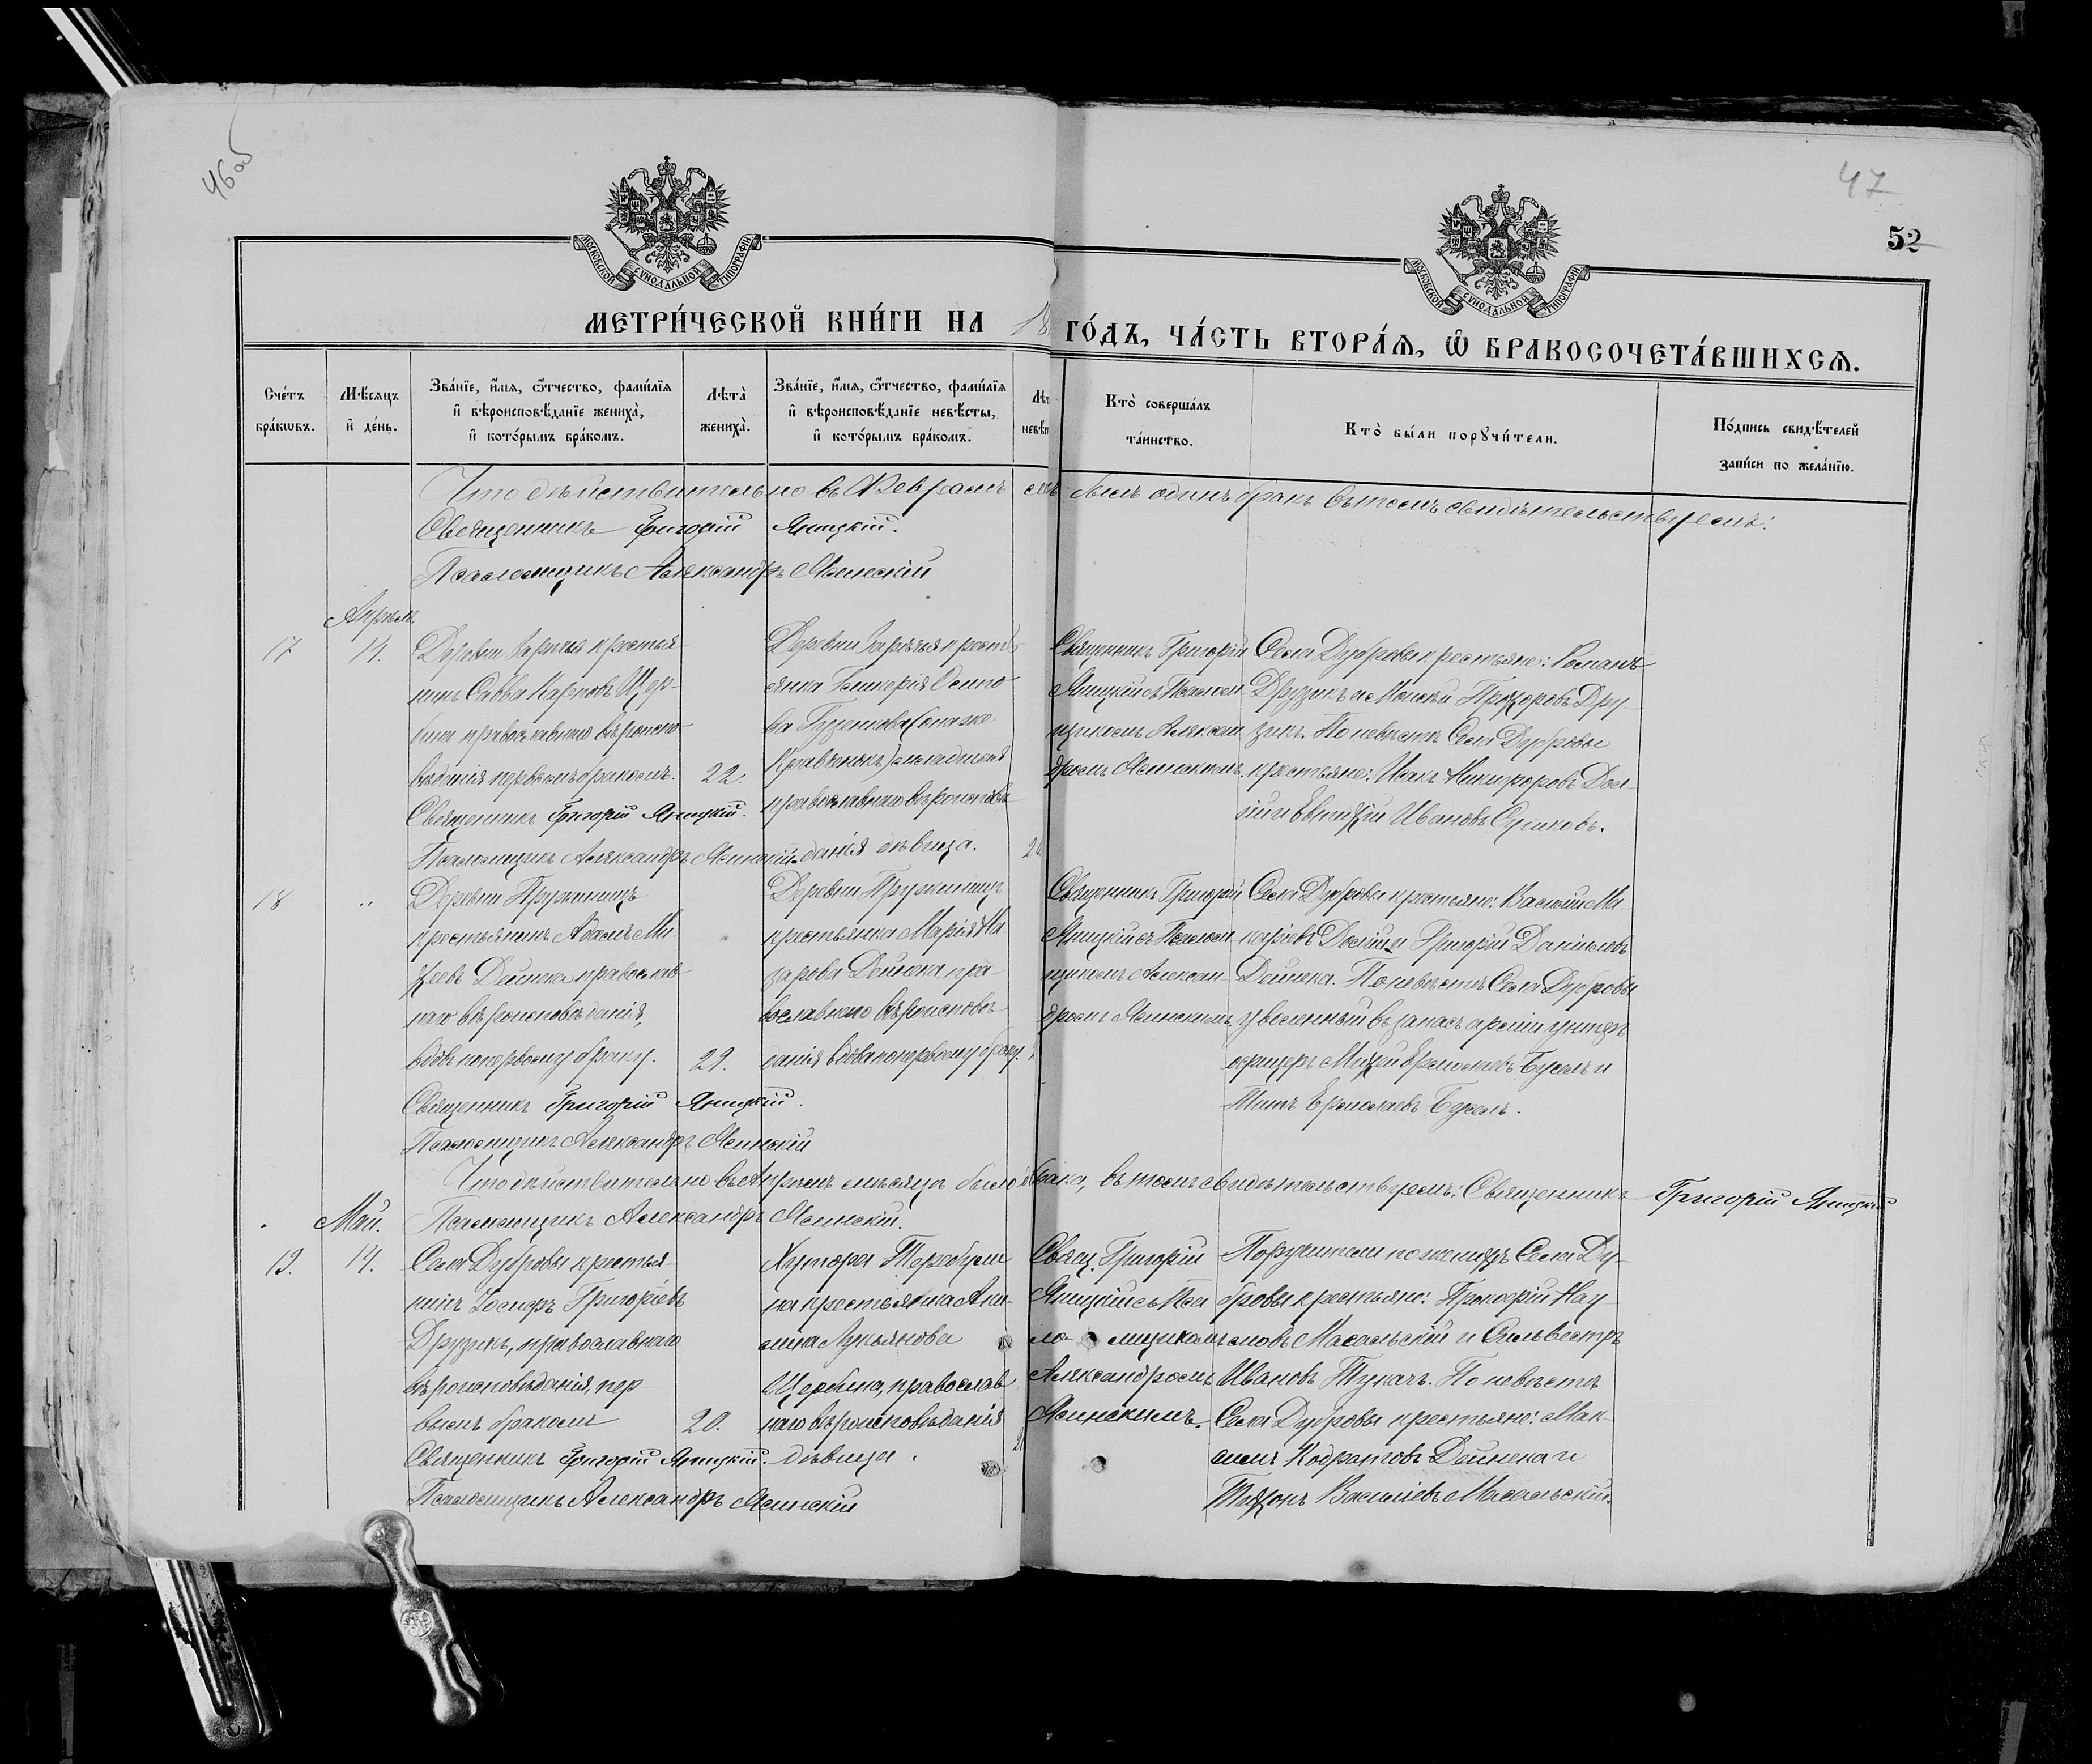 46об
47
52
МОСКОВСКОЙ СѴНОДАЛЬНОЙ ТИПОГРАФІИ
МОСКОВСКОЙ СѴНОДАЛЬНОЙ ТИПОГРАФІИ
МЕТРИ́ЧЕСКОЙ КНИ́ГИ НА 18
ГО́ДЪ, ЧА́СТЬ ВТОРА́Ѧ, Ѡ БРАКОСОЧЕТА́ВШИХСѦ.
Сче́тъ бра́кѡвъ.
Мѣ́сяцъ и҆ де́нь.
Зва́нїе, и҆́мя, ѻ҆́тчество, фами́лїя
и҆ вѣроисповѣ́данїе жениха̀,
и҆ кото́рымъ бра́комъ.
Лѣта̀ жениха̀.
Зва́нїе, и҆́мя, ѻ҆́тчество, фами́лїя
и҆ вѣроисповѣ́данїе невѣ́сты,
и҆ кото́рымъ бра́комъ.
Кто̀ соверша́лъ та́инство.
Кто̀ бы́ли порꙋчи́тели.
По́дпись свидѣ́телей
за́писи по жела́нїю.
Что дѣйствительно въ Февралѣ
былъ одинъ бракъ въ томъ свидѣтельствуемъ:
Священникъ Григорій Яницкій.
Псаломщикъ Александръ Ясинскій
Апрѣль
17
14.
Деревни Зарѣчья крестья-
нинъ Савва Карповъ Щер-
бина православнаго вѣроиспо-
вѣданія первымъ бракомъ.
22.
Священникъ Григорій Яницкій.
Псаломщикъ Александръ Ясинскій
Деревни Зарѣчья кресть-
янка Гликерія Осипо-
ва
православнаго вѣроисповѣ-
данія дѣвица.
Священникъ Григорій
Яницкій съ Псалом-
щикомъ Алексан-
дромъ Ясинскимъ.
Села Дубровы крестьяне: Романъ
Друзикъ и Моисей Прохоровъ Дру-
зикъ. По невѣстѣ Села Дубровы
крестьяне: Исакъ Никифоровъ
и Евтихій Ивановъ
18
"
Деревни Пружиницъ
крестьянинъ Адамъ Ми-
хеевъ Дейнека православ-
наго вѣроисповѣданія,
вдовъ по первому браку.
29.
Священникъ Григорій Яницкій.
Псаломщикъ Александръ Ясинскій
Деревни Пружиницъ
крестьянка Марія На-
зарова Дейнека пра-
вославнаго вѣроисповѣ-
данія вдова по первому браку.
Священникъ Григорій
Яницкій съ Псалом-
щикомъ Алексан-
дромъ Ясинскимъ
Села Дубровы крестьяне: Василій Ма-
каріевъ и Григорій Даніиловъ
Дейнека. По невѣстѣ Села Дубровы
уволенный въ запасъ арміи унтеръ
офицеръ Михей Ермолаевъ и
Титъ Ермолаевъ
Что дѣйствительно въ Апрѣлѣ мѣсяцѣ было
брака, въ томъ свидѣтельствуемъ: Священникъ Григорій Яницкій
Псаломщикъ Александръ Ясинскій.
Май.
19.
14.
Села Дубровы крестья-
нинъ Іосифъ Григоріевъ
Друзикъ, православнаго
вѣроисповѣданія, пер-
вымъ бракомъ
20.
Священникъ Григорій Яницкій.
Псаломщикъ Александръ Ясинскій
Хутора
на крестьянка Аки-
лина Лукьянова
Щербина, православ-
наго вѣроисповѣданія
дѣвица.
Свящ. Григорій
Яницкій съ Пса-
ломщикомъ
Александромъ
Ясинскимъ.
Поручители по женихѣ Села Ду-
бровы крестьяне: Прокофій Нау-
мовъ Масальскій и Сильвестръ
Ивановъ Ткачъ. По невѣстѣ
Села Дубровы крестьяне: Мак-
симъ Кодратовъ Дейнека и
Тихонъ Васильевъ Масальскій.